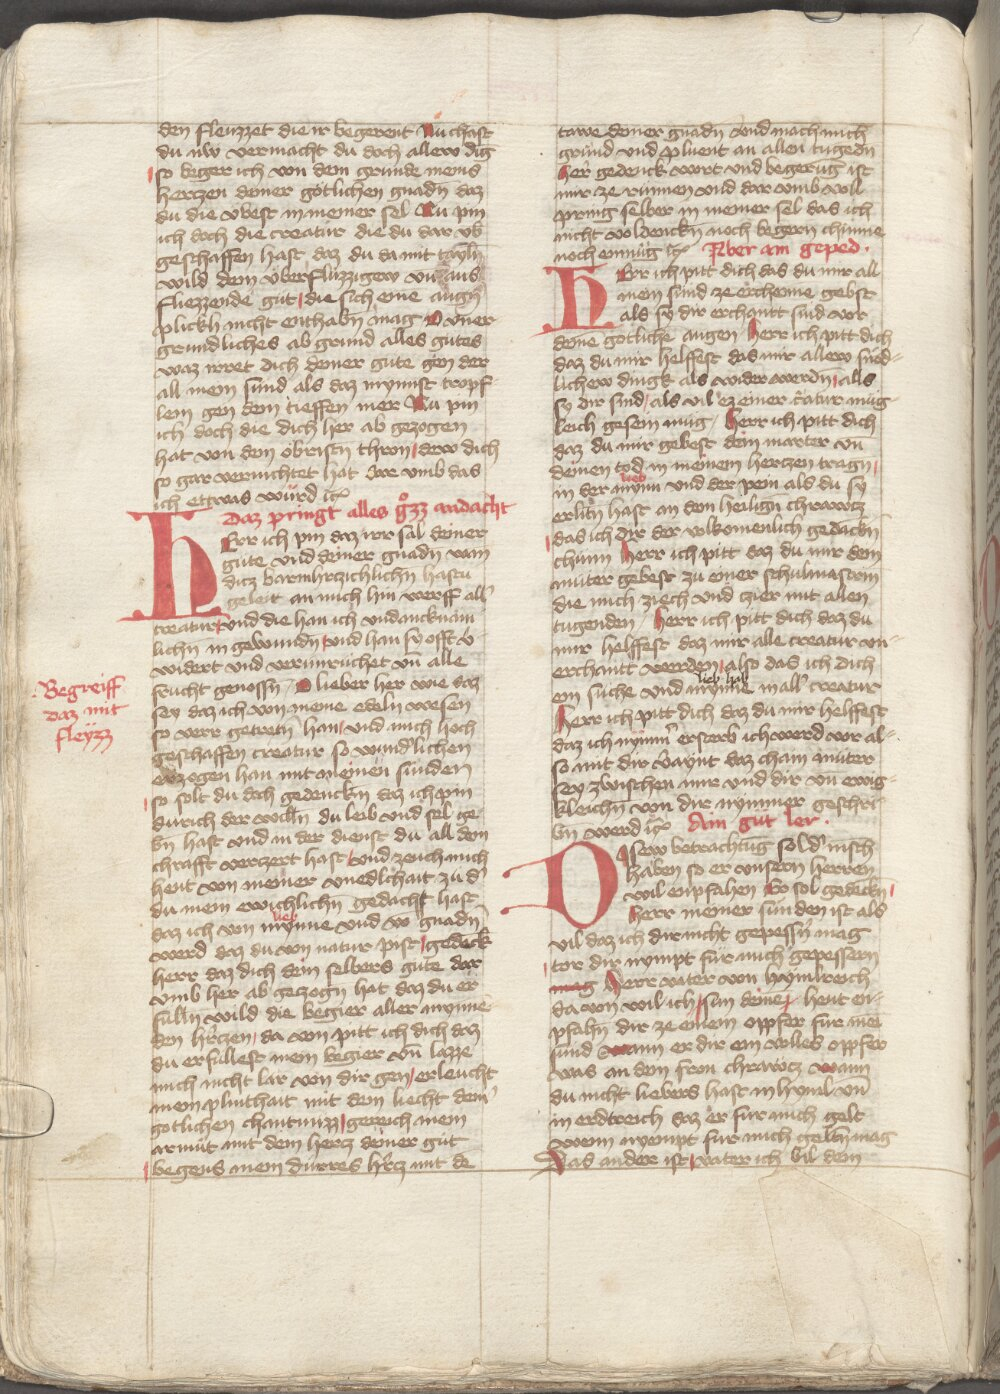 den fleuzzet die ir begerent Nu chast
du nw vermacht du doch allew dig
so beger ich von dem grunde meins
hertzen deiner götlichen gnadn daz
du die vbest in meiner sel Nu pin
ich doch die creatur die du dar vb
geschaffen hast daz du da mit tayln
wild dein vberflüzzigew vn aus
fliezzende gut die sich eine augn
plickh nicht enthabn mag O vner
grundliches ab grund alles gutes
waz irret dich deiner gute gen der
all mein sund als daz mynnst tropf
lein gen dem tieffen mer Nu pin
ich doch die dich her ab gezogen
hat von dem obristn thron derr dich
so gar vernichtet hat dar vmb das
ich ettwas würd ıc
Daz pringt alles grozz andacht
Herr ich pin daz irr sal deiner
gute vnd deiner gnadn wan
dicz barmhrczichlichn hastu
geleit an mich hin werff all
creatur vnd die han ich vndancknam
lichn in gewundn vnd han sy offt v
widert vnd verunruchet vn alle
frucht genossn O lieber her wie daz
sey daz ich von meine edeln wesen
so verr getretn han vnd mich hoch
geschaffen creatur so wundlichen
erczogen han mit meinen sunden
so solt du doch gedenckn daz ich pin
durich der willn du leib vnd sel ge
bn hast vnd in der dienst du all dein
chrafft verczert hast vnd zeuch mich
heut von meiner vnedlchait zu d
du mein ewichlichn gedacht hast
lieb
daz ich von mynne vnd vo gnadn
werd daz du von natur pist gedeck
herr daz dich dein selbers gute dar
vmb her ab geczogn hat daz du er
fulln wild die begier aller mynne
den hrczen da von pitt ich dich daz
du erfullest mein begier vn lazze
mich nicht lar von dir gen erleucht
mein plinthait mit dem liecht dein
gotlichen chantnuzz gereich mein
armut mit dem hertz deiner gut
begeus mein durres hrcz mit de
Begreiff
daz mit
fleyzz
tawe deiner gnadn vnd mach mich
grund vnd pluent an allen tugedn
her gedenck wort vnd begerug ist
mir ze rinnen vnd dar vmb voll
pring selber in meiner sel das ich
nicht voldenckn noch begern chunne
noch enmüg ıc Aber ain geped.
Herr ich pitt dich das du mir all
mein sund ze erchenne gebst
als sy dir erchantt sind vor
deine gotliche augen Herr ich pitt dich
daz du mir helffest das mir allew sund-
lichew dingk als wider werdn alls
sy dir sind als vil ez einer catur müg
leich gesein mug Herr ich pitt dich
daz du mir gebest dein marter vn
deinen tod in meinem hertzen tragn
lieb
in der mynn vnd der pein als du sy
erlitn hast an dem heilign chrawcz
das ich dir der volkomenlich gedackn
chunn Herr ich pitt daz du mir dein
muter gebest zu einer schulmastrin
die mich ziech vnd czier mit allen
tugenden Herr ich pitt dich daz du
mir helffest daz mir alle creatur vn-
erchantt werden also das ich dich
lieb hab
ein suche vnd mynne in all creatur
Herr ich pitt dich daz du mir helffest
daz ich nymm ersterb ich werd vor al-
so mit dir veraynt daz chain muter
sey zwischen mir vnd dir vn ewig-
kleichn von dir nymmer geschri
bn werd ıc Ain gut ler.
Disew betrachtug sol d misch
haben so er vnsern herren
wil enpfahen Er sol gedenckn
Herr meiner sunden ist als
vil daz ich dir nicht gepessn mag
tor dir nympt fur mich gepessern
mag Herr vater von hymlreich
da von wil ich sun deine heut en-
pfahn dir ze einem oppfer fur mei
sund wann er dir ein volles oppfer
was an dem fron chrawcz wann
du nicht liebers hast in hymil vn
in erdtreich daz er fur mich gelt
wenn nyempt fur mich geltn mag
Das ander ist vater ich bil dein